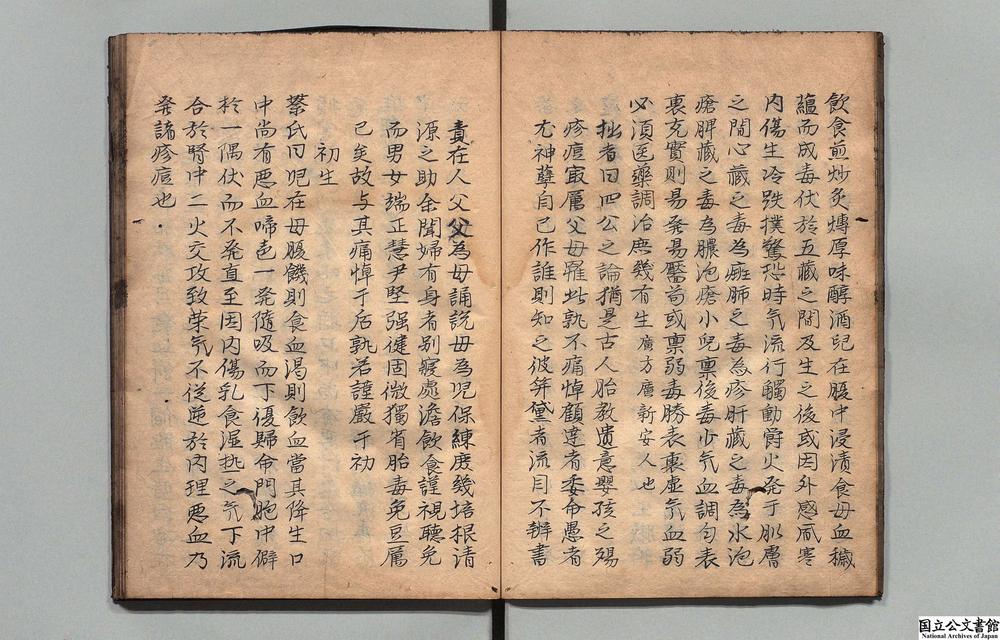 飲食煎炒炙煿厚味醇酒兒在腹中浸漬食母血穢
蘊而成毒伏於五藏之間及生之後或因外感風寒
内傷生冷跌撲驚恐時气流行觸動爵火発于肌膚
之間心藏之毒為癍肺之毒為疹肝藏之毒為水泡
瘡脾藏之毒為膿泡瘡小兒稟後毒少气血調匀表
裏充實則易発易靨苟或稟弱毒勝表裏虚气血弱
必湏医藥調治庶幾有生廣方廣新安人也
拙者曰四公之論猶是古人胎教遺意嬰孩之殤
疹痘㝡厲父母罹此孰不痛悼顧達者委命愚者
尤神孽自己作誰則知之彼笄黛者流目不辧書
責在人父父為母誦説母為児保練庻幾培根清
源之助余聞婦有身者别寝處澹飲食謹視聽免
而男女端正慧尹堅强健固微獨省胎毒免豆厲
已矣故与其痛悼于后孰若謹嚴于初
初生
蔡氏曰児在母腹饑則食血渇則飲血當其降生口
中尚有悪血啼声一発隨吸而下復歸命門胞中僻
於一隅伏而不発直至因内傷乳食湿热之气下流
合於腎中二火交攻致荣气不從逆於肉理悪血乃
発諸疹痘也
国立公文書館
National Archives of Japan